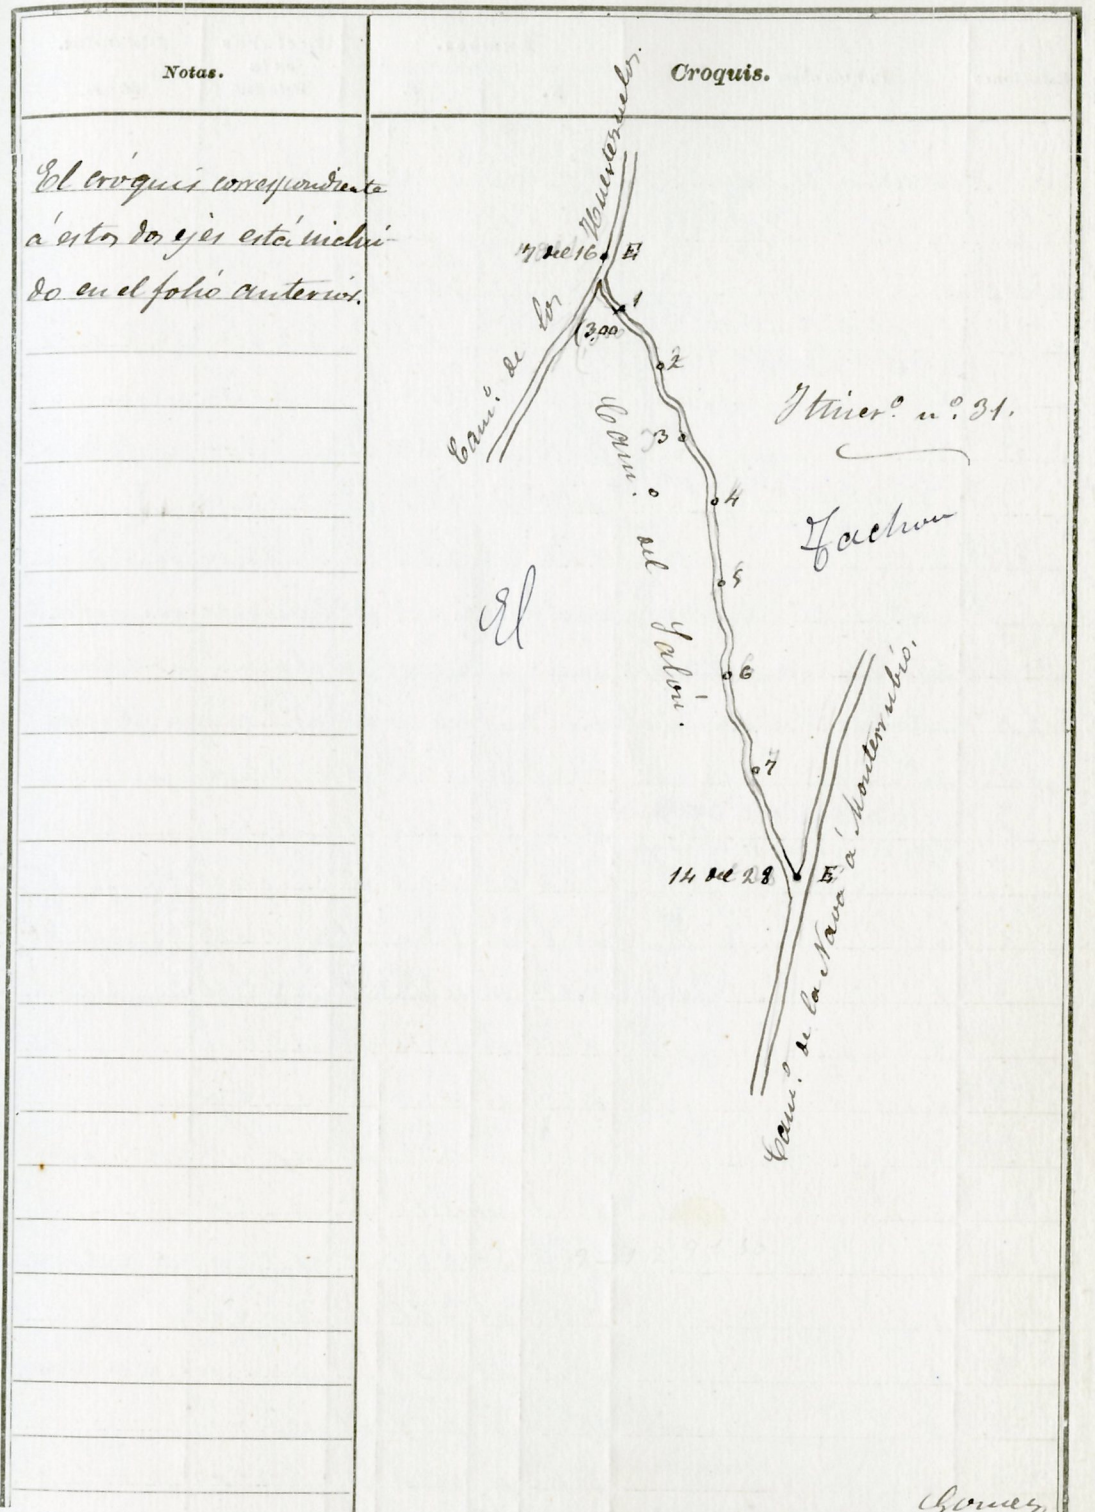 Notas.
Croquis.
El cróquis correspondiente
á estos dos ejes está inclui-
do en el folio anterior.
Cam.º de los Huertezuelos.
7 del 16 E
1
(3,00
2
3
4
5
6
7
Cam.º del Jabón.
Itiner.º n.º 31.
El Tachon
14 del 28 E
Cam.º de la Nava á Monterrubio.